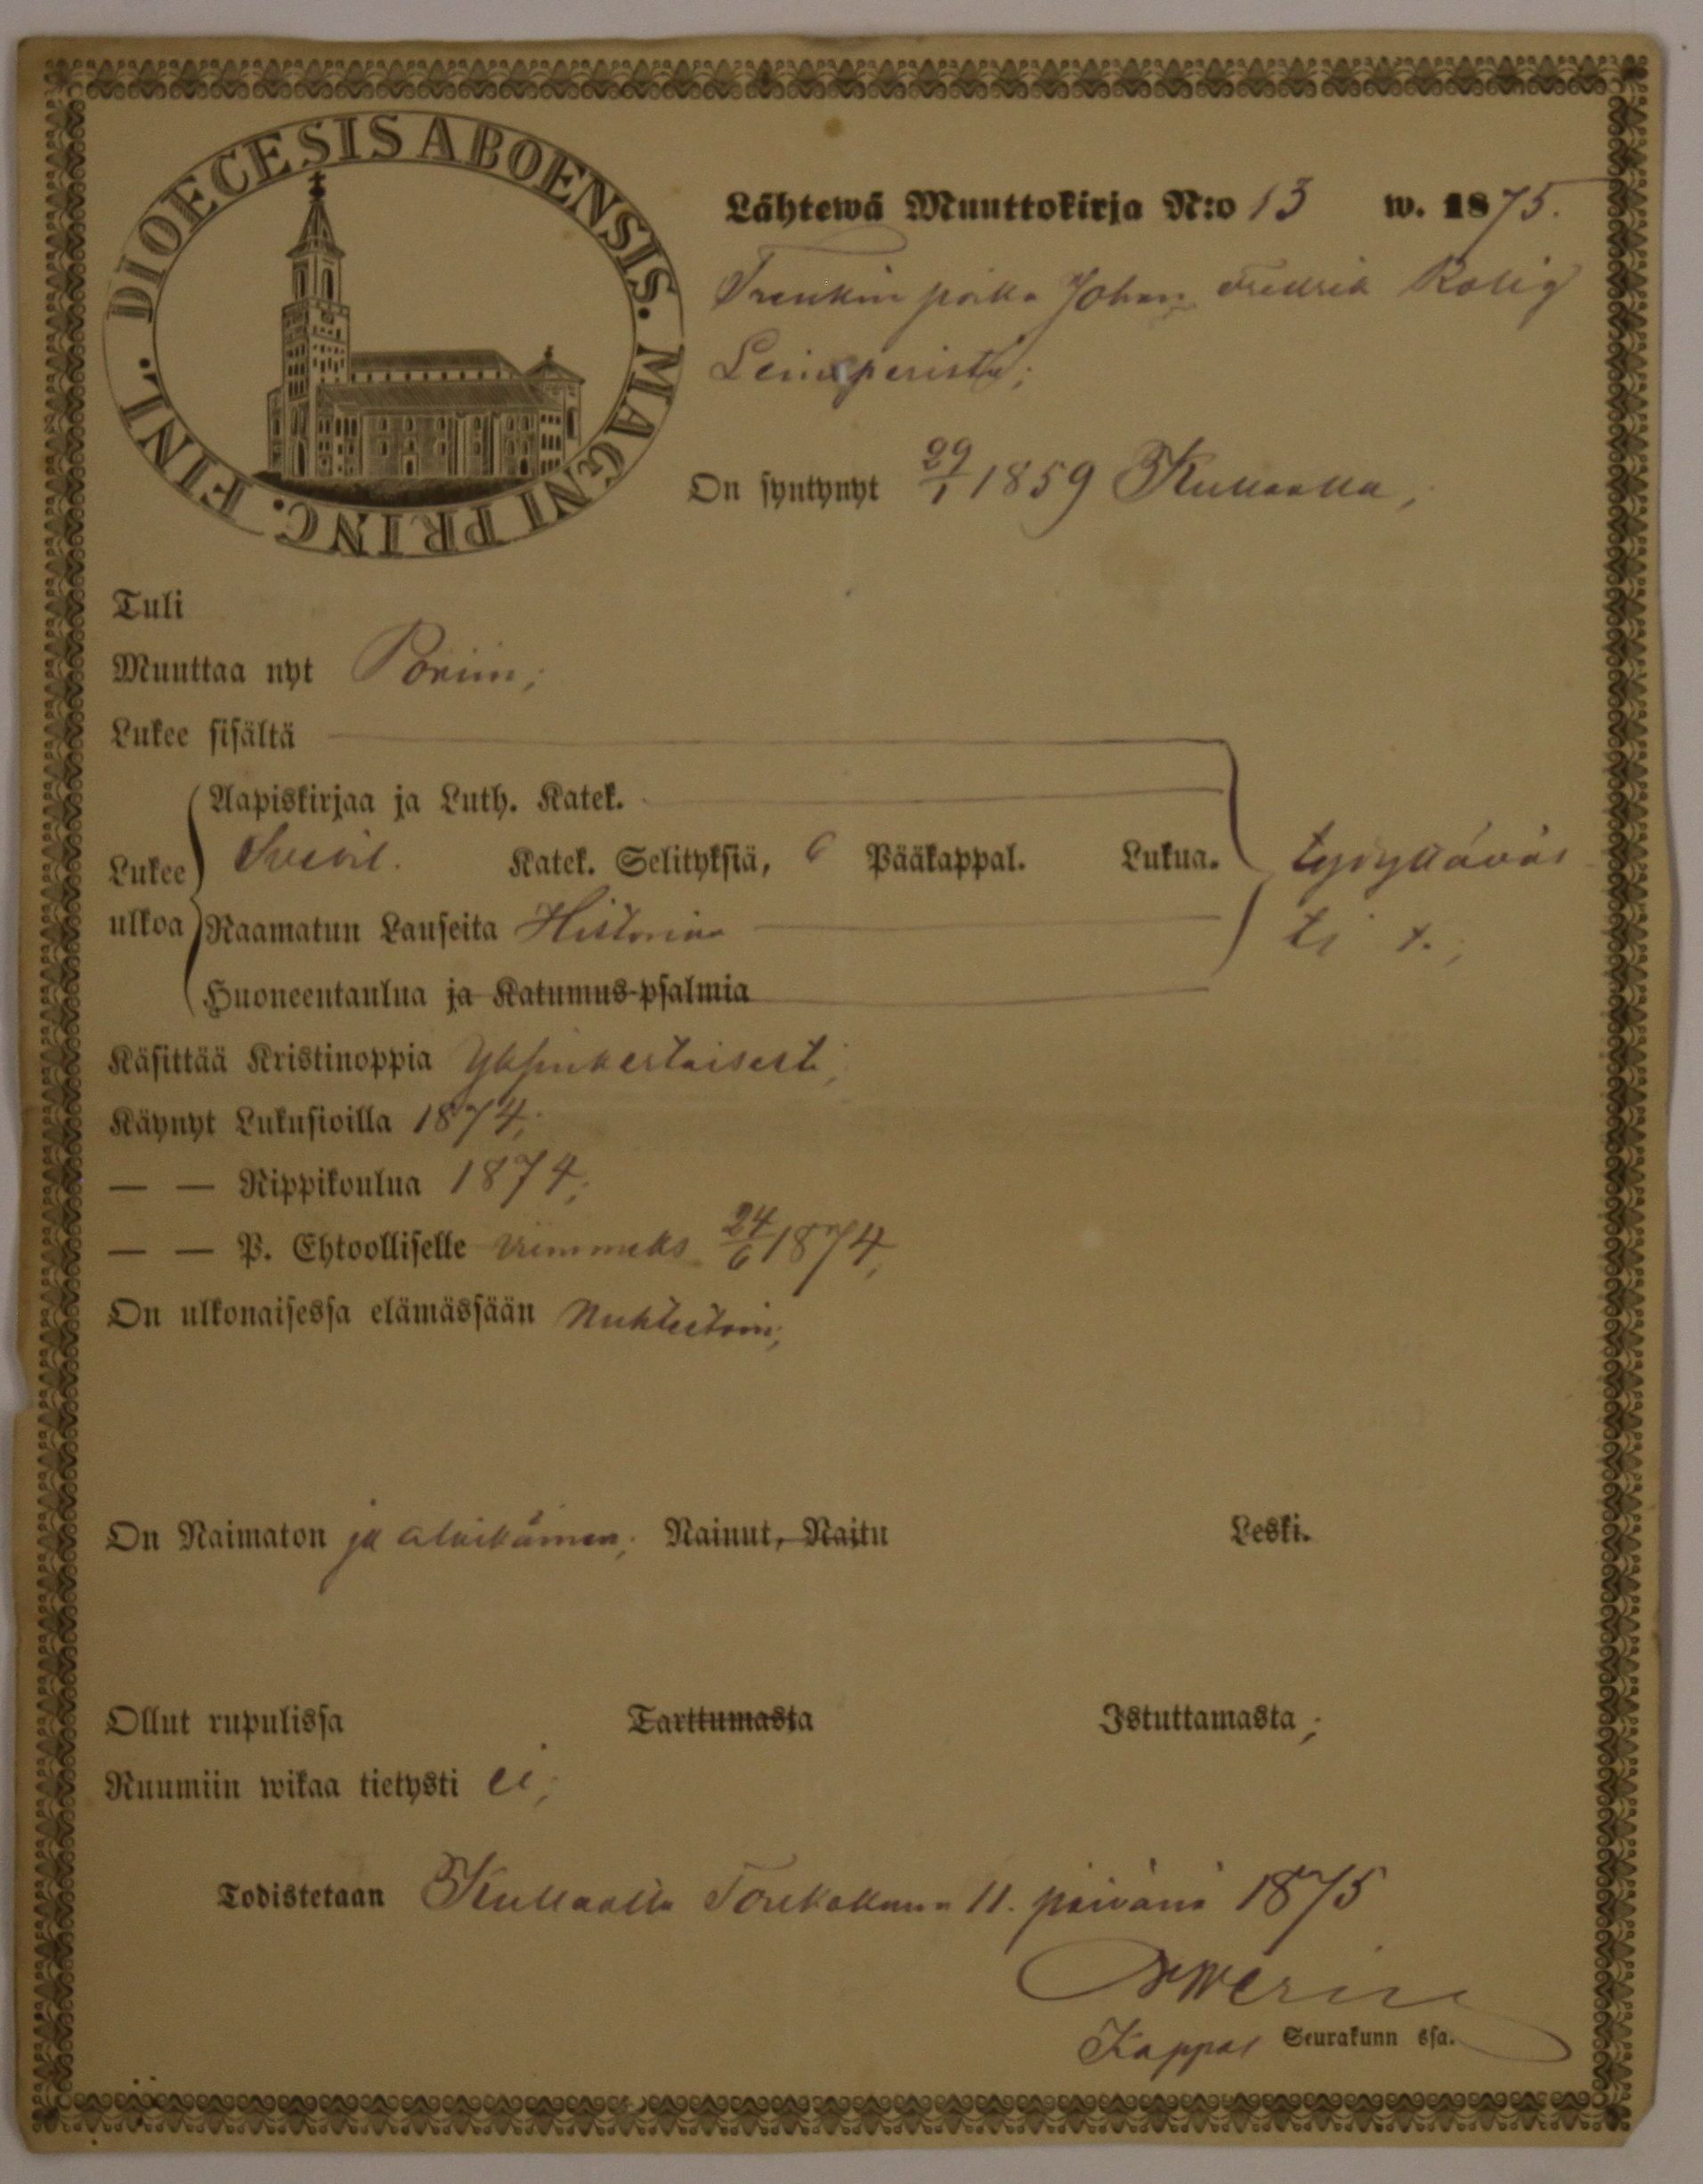 DIOECESIS ABOENSIS. MAGNI PRINC. FINL.
Lähtewä Muuttokirja N:o 13 w. 1875.
Trenkin poika Johan Fredrik Rolig
Leineperistä;
On syntynyt 29/1 1859 Kullaalla,
Tuli
Muuttaa nyt Poriin;
Lukee sisältä
Aapiskirjaa ja Luth. Katek.
Lukee ulkoa Svebil. Katek. Selityksiä, 6 Pääkappal. Lukua. tyydyttäväs
Raamatun Lauseita Historiaa ti
Huoneentaulua ja Katumus-psalmia
Käsittää Kristinoppia Yksinkertaisesti;
Käynyt Lukusioilla 1874;
— — Rippikoulua 1874;
— — P. Ehtoolliselle viimmeks 24/6 1874;
On ulkonaisessa elämässään Nuhteetoin;
On Naimaton ja alaikäinen; Nainut, Naitu Leski.
Ollut rupulissa Tarttumasta Istuttamasta;
Ruumiin wikaa tietysti ei;
Todistetaan Kullaalla Toukokuun 11. päivänä 1875
Kappal Seurakunn ssa.